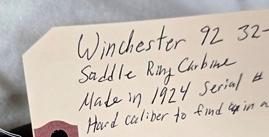 Winchester 92 32-
Saddle Ring Carbine
Made in 1924 Serial #
Hard caliber to find in a